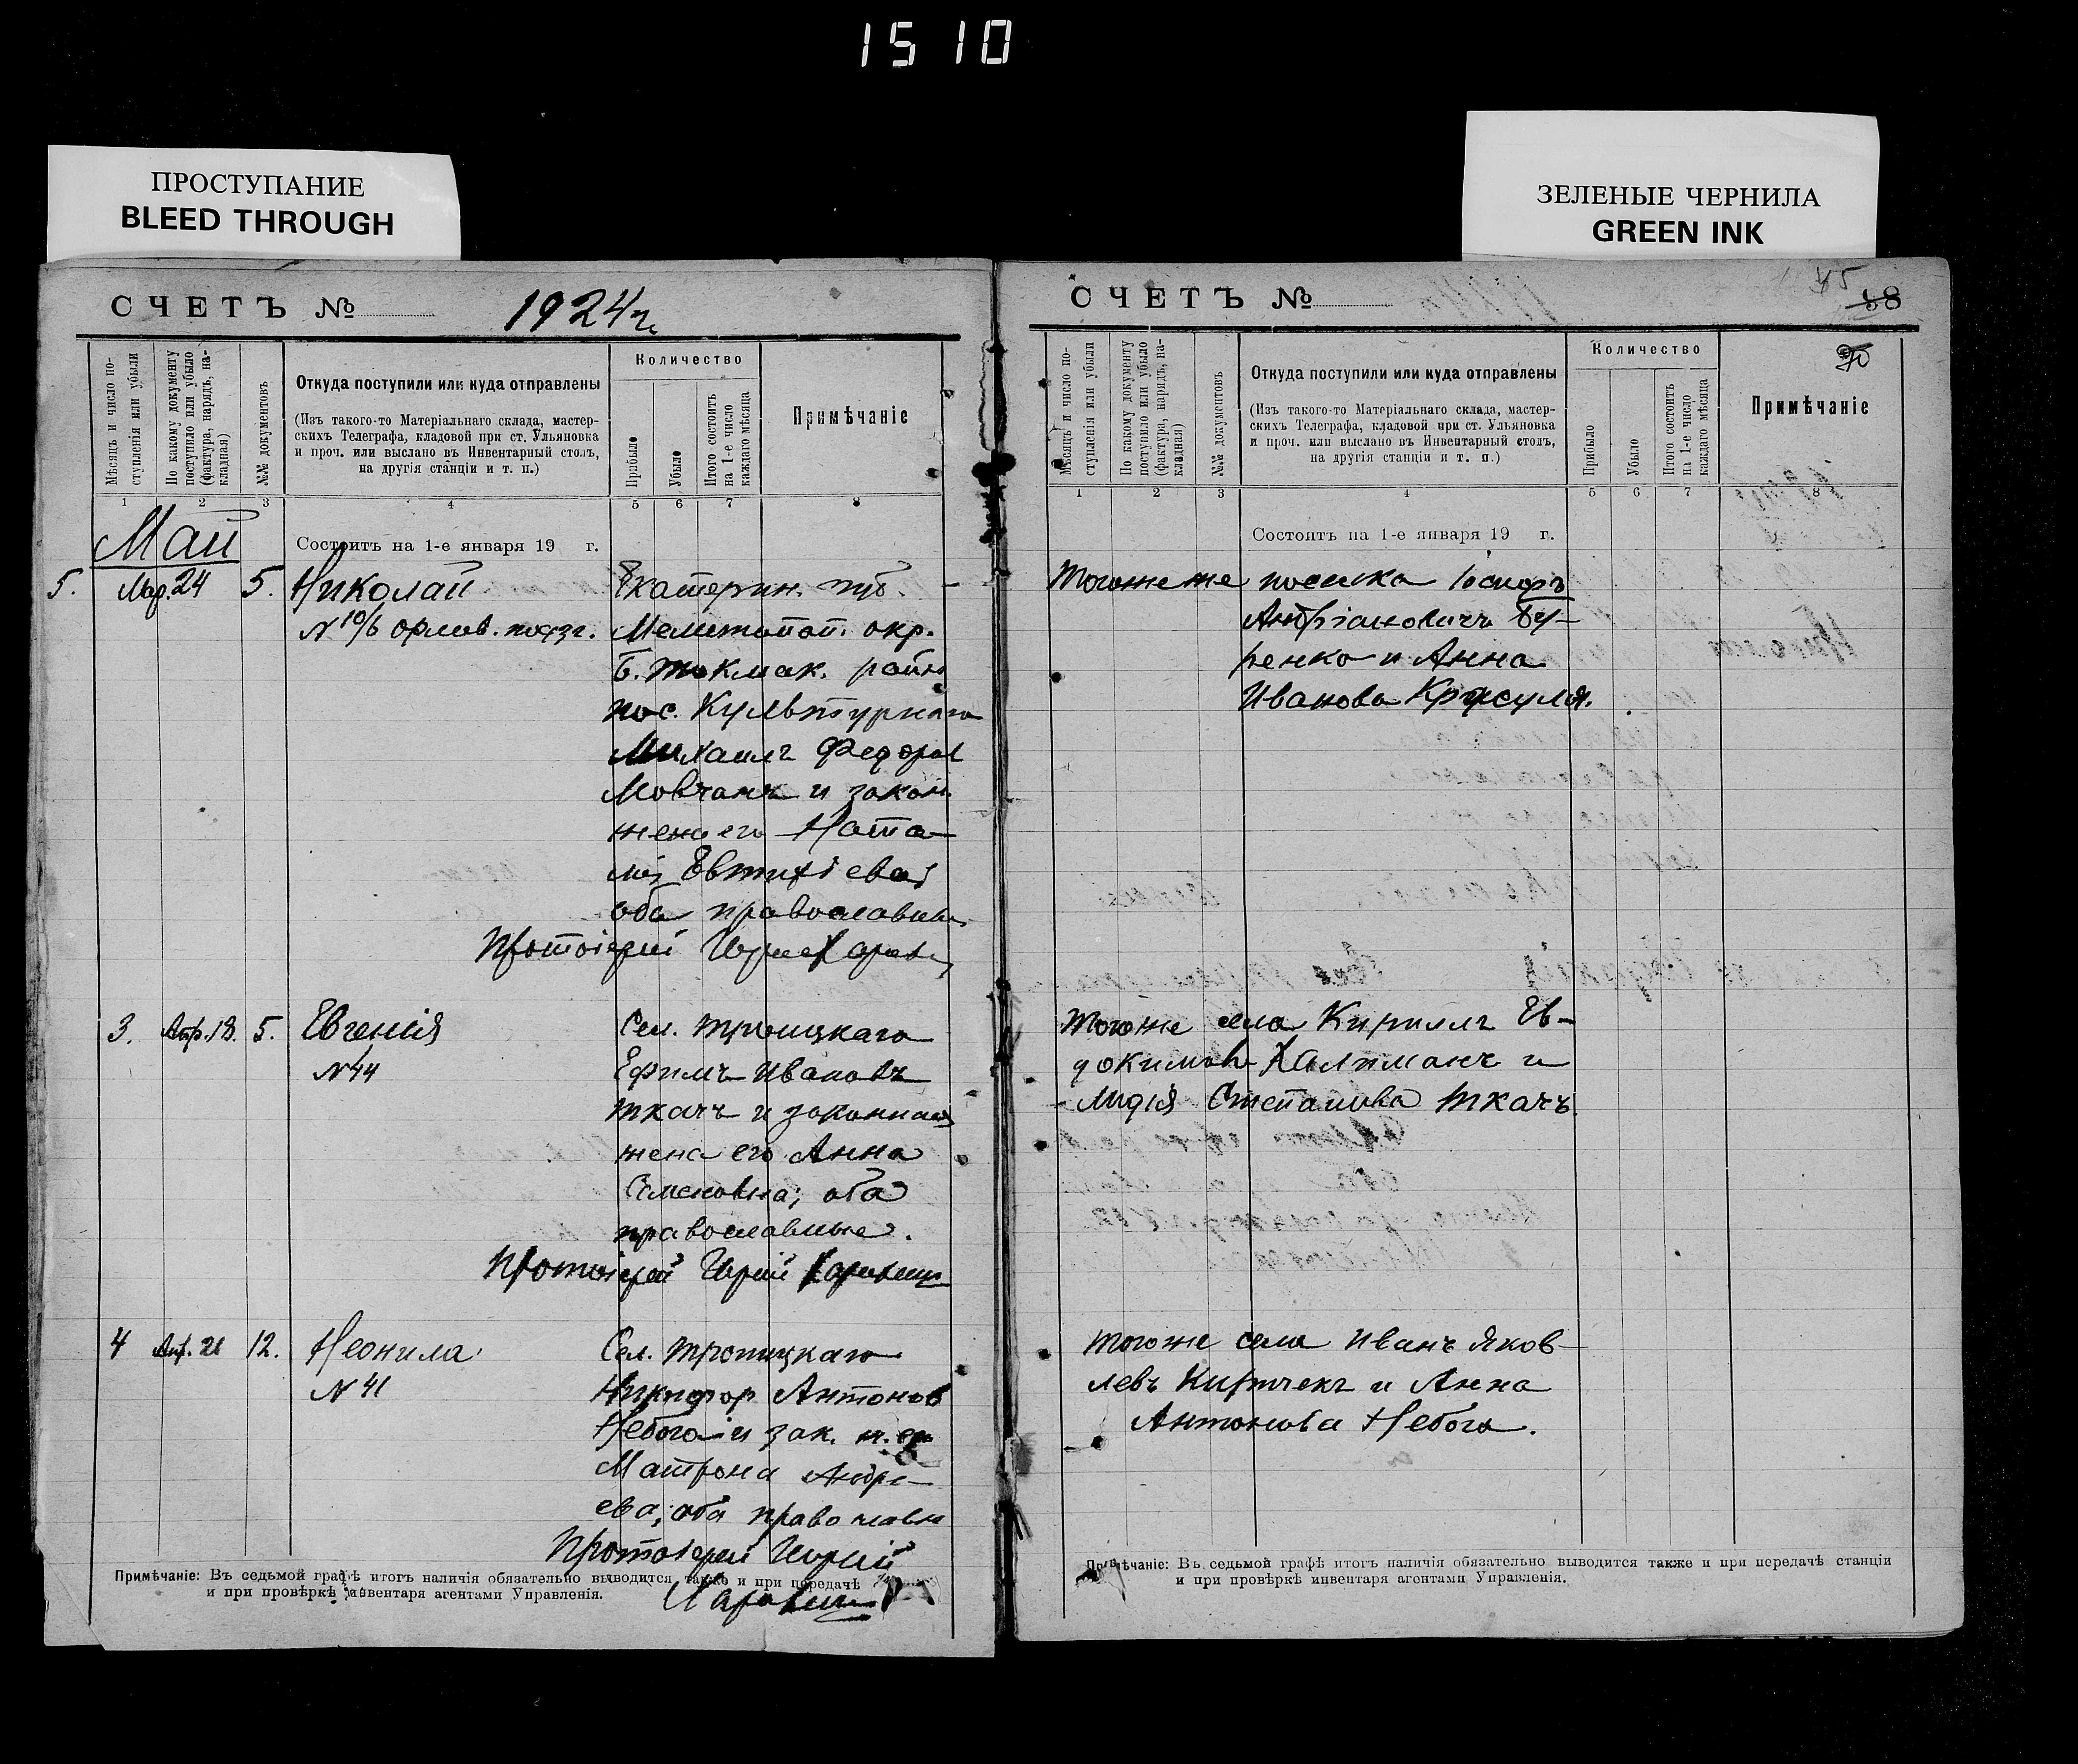 1510
ПРОСТУПАНИЕ
BLEED THROUGH
ЗЕЛЕНЫЕ ЧЕРНИЛА
GREEN INK
СЧЕТЪ №
1924 г.
Мѣсяцъ и число поступленія или убыли
По какому документу поступило или убыло (фактура, нарядъ, накладная)
№№ документовъ
Откуда поступили или куда отправлены
(Изъ такого-то Матеріальнаго склада, мастер-
скихъ Телеграфа, кладовой при ст. Ульяновка
и проч. или выслано въ Инвентарный столъ,
на другія станціи и т. п.)
Количество
Прибыло
Убыло
Итого состоитъ на 1-е число каждаго мѣсяца
Примѣчаніе
1 2 3 4 5 6 7 8
Май
Состоитъ на 1-е января 19 г.
5. Мар. 24 5. Николай Екатерин. губ.
N 10/6 Мелитопол. окр.
Б. Токмак. район
пос. Культурнаго
Михаилъ Федоров
Мовчанъ и закон.
жена его Ната-
лія Евтихіева;
оба православн.
Протоіерей
3. Апр. 13. 5. Евгенія Сел. Троицкаго
N 44 Ефимъ Ивановъ
Ткачъ и законная
жена его Анна
Семеновна; оба
православные.
Протоіерей
4 Апр. 21 12. Неонила Сел. Троицкаго
N 41 Никифор Антонов
Небога и зак. ж. его
Матрона Андре-
ева; оба православн
Протоіерей
Примѣчаніе: Въ седьмой графѣ итогъ наличія обязательно выводится также и при передачѣ
и при провѣркѣ инвентаря агентами Управленія.
СЧЕТЪ №
45
88
Мѣсяцъ и число поступленія или убыли
По какому документу поступило или убыло (фактура, нарядъ, накладная)
№№ документовъ
Откуда поступили или куда отправлены
(Изъ такого-то Матеріальнаго склада, мастер-
скихъ Телеграфа, кладовой при ст. Ульяновка
и проч. или выслано въ Инвентарный столъ,
на другія станціи и т. п.)
Количество
Прибыло
Убыло
Итого состоитъ на 1-е число каждаго мѣсяца
Примѣчаніе
1 2 3 4 5 6 7 8
Состоитъ на 1-е января 19 г.
Того же поселка
Андріановичъ Бу-
ренко и Анна
Иванова
Тогоже села Кириллъ Ев-
докимовъ Калиманъ и
Лидія Степанова Ткачъ.
Тогоже села Иванъ Яков-
левъ Кирпчекъ и Анна
Антонова Небога.
Примѣчаніе: Въ седьмой графѣ итогъ наличія обязательно выводится также и при передачѣ станціи
и при провѣркѣ инвентаря агентами Управленія.